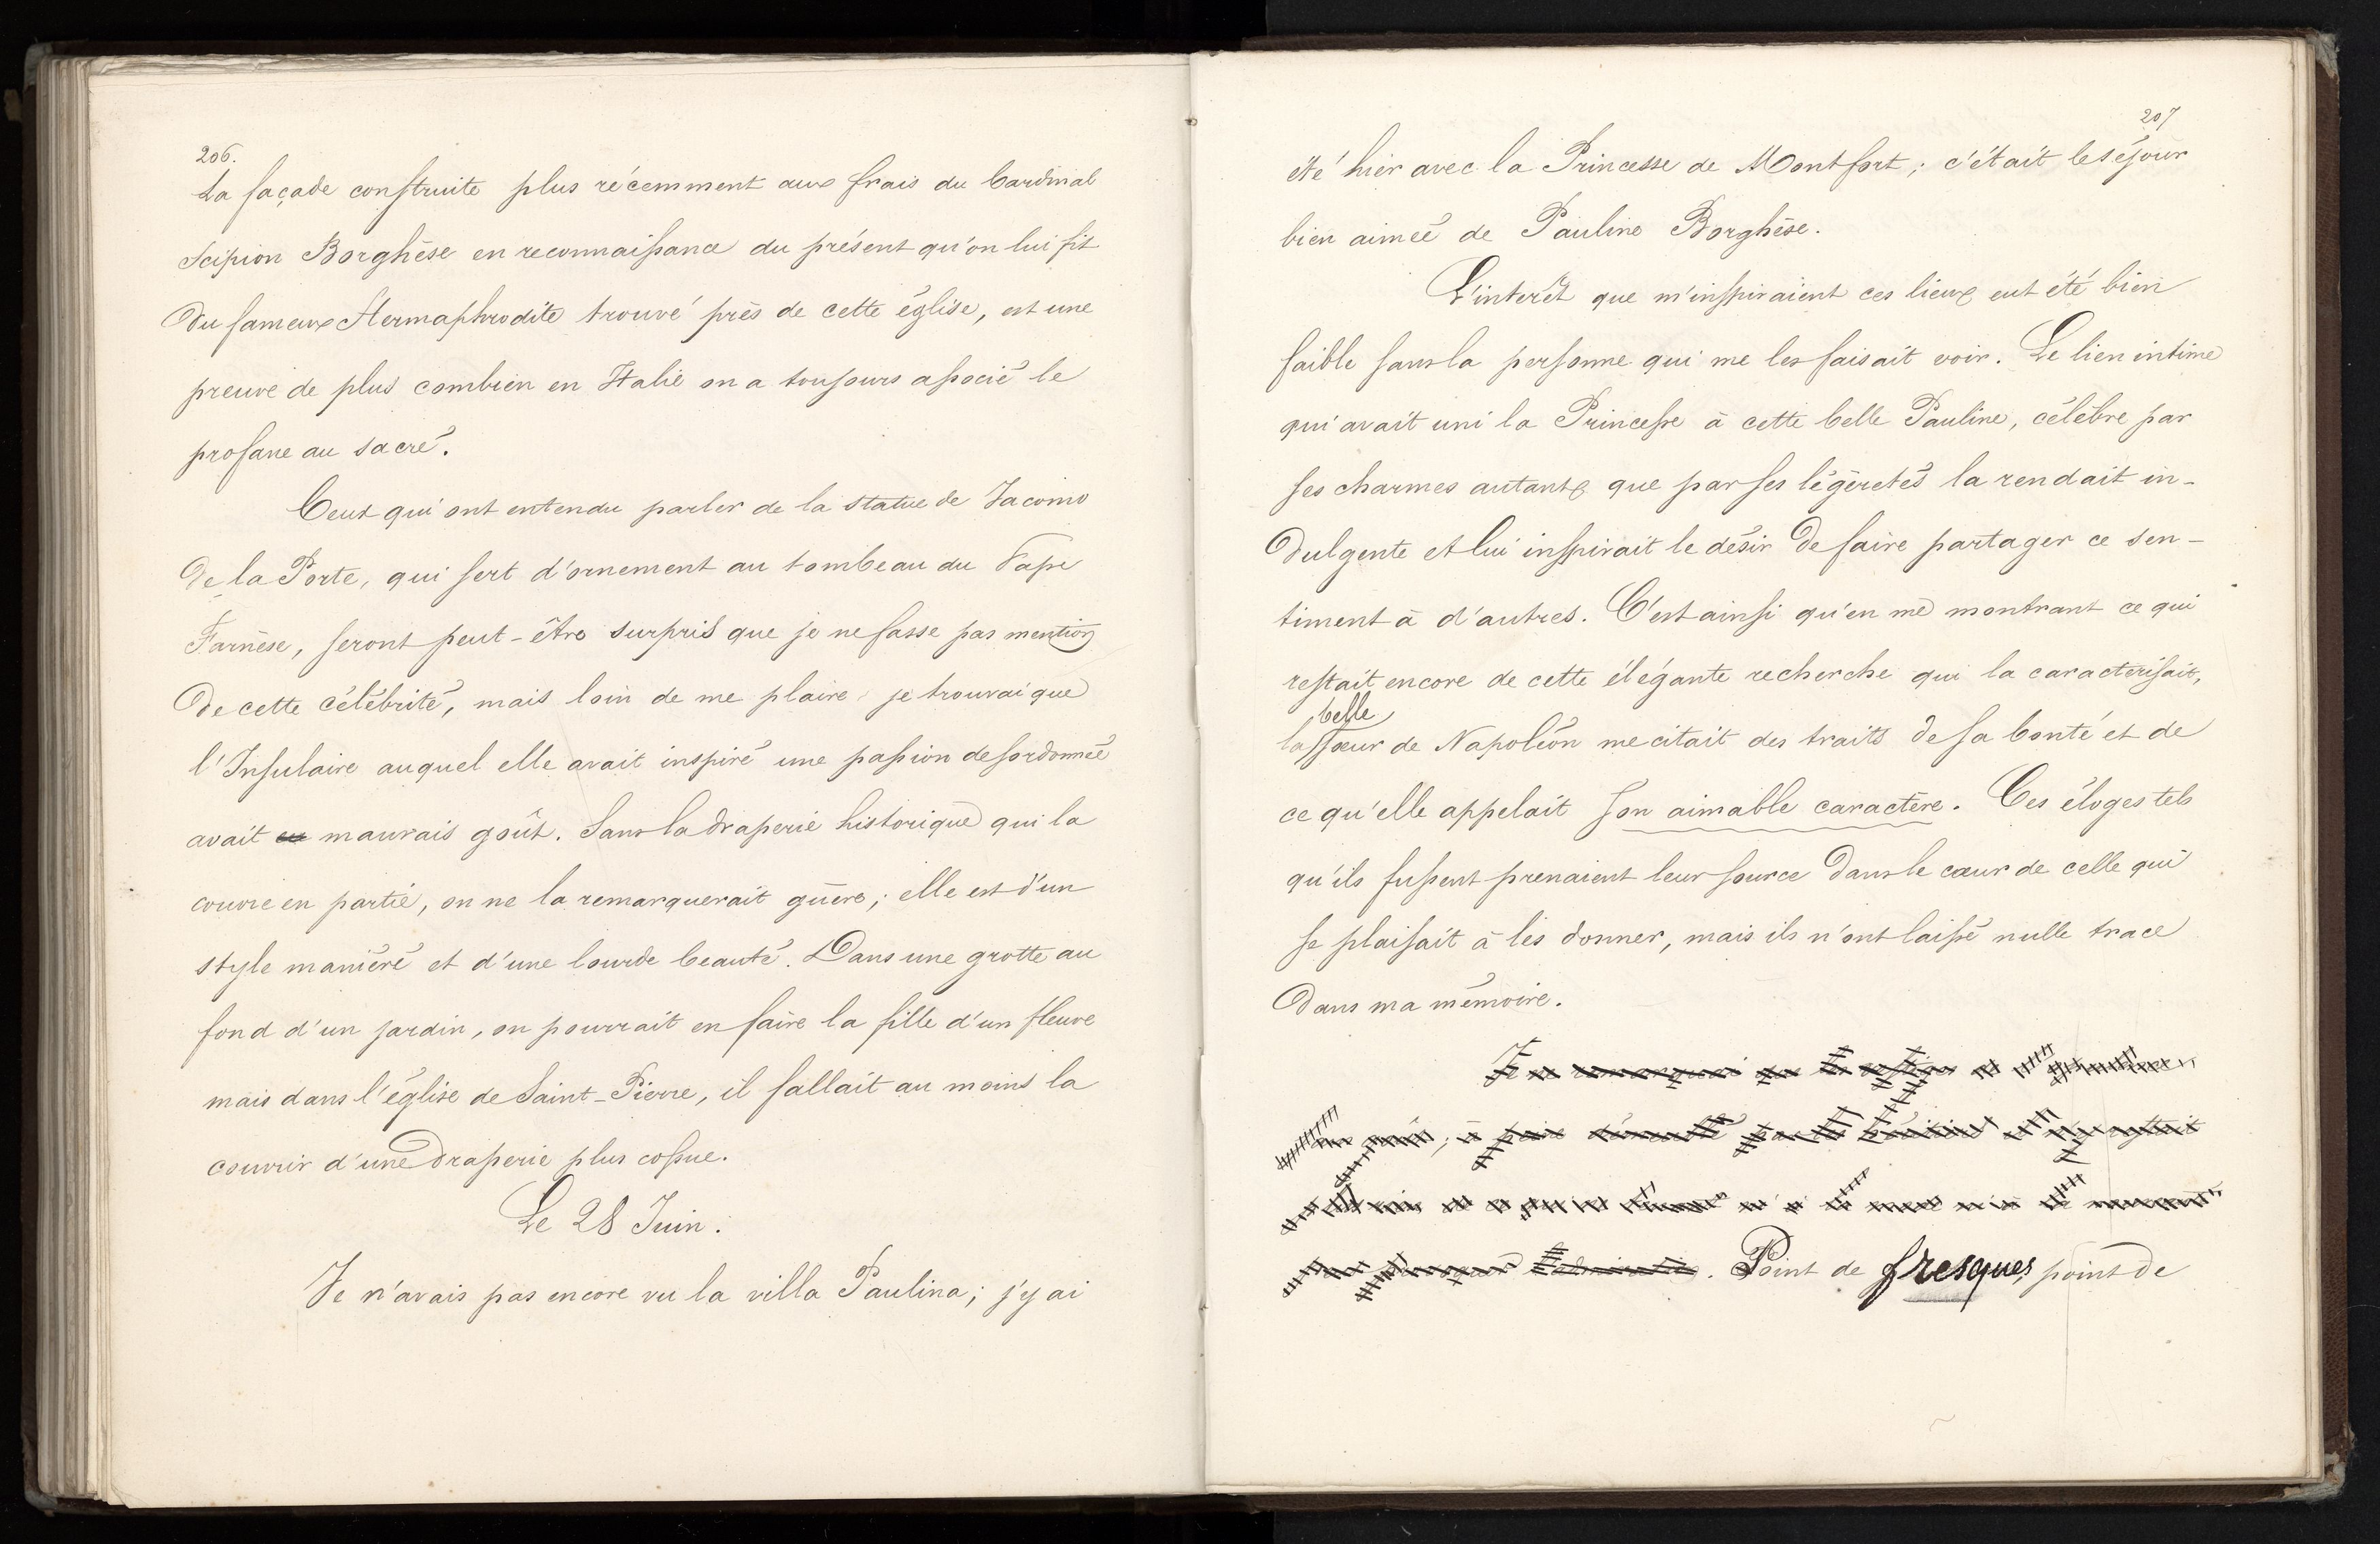 206.
La façade construite plus récemment aux frais du Cardinal
Scipion Borghèse en reconnaissance du présent qu'on lui fit
du fameux Hermaphrodite trouvé près de cette église, est une
preuve de plus combien en Italie on a toujours associé le
profane au sacré.
Ceux qui ont entendu parler de la statue de Jacomo
de la Porte, qui sert d'ornement au tombeau du Pape
Farnèse, seront peut-être surpris que je ne fasse pas mention
de cette célébrité, mais loin de me plaire je trouvai que
l'Insulaire auquel elle avait inspiré une passion desordonnée
avait eu mauvais goût. Sans la draperie historique qui la
couvre en partie, on ne la remarquerait guère; elle est d'un
style maniéré et d'une lourde beauté. Dans une grotte au
fond d'un jardin, on pourrait en faire la fille d'un fleuve
mais dans l'église de Saint-Pierre, il fallait au moins la
couvrir d'une draperie plus cossue.
Le 28 Juin.
Je n'avais pas encore vu la villa Paulina; j'y ai
207
été hier avec la Princesse de Montfort; c'était le séjour
bien aimée de Pauline Borghèse.
L'interêt que m'inspiraient ces lieux eut été bien
faible sans la personne qui me les faisait voir. Le lien intime
qui avait uni la Princesse à cette belle Pauline, célèbre par
ses charmes autant que par ses légèretés la rendait in-
dulgente et lui inspirait le désir de faire partager ce sen-
timent à d'autres. C'est ainsi qu'en me montrant ce qui
restait encore de cette élégante recherche qui la caractérisait,
belle
la soeur de Napoléon me citait des traits de sa bonté et de
ce qu'elle appelait son aimable caractère. Ces éloges tels
qu'ils fussent prenaient leur source dans le coeur de celle qui
se plaisait à les donner, mais ils n'ont laissé nulle trace
dans ma mémoire.
Point de fresques, point de